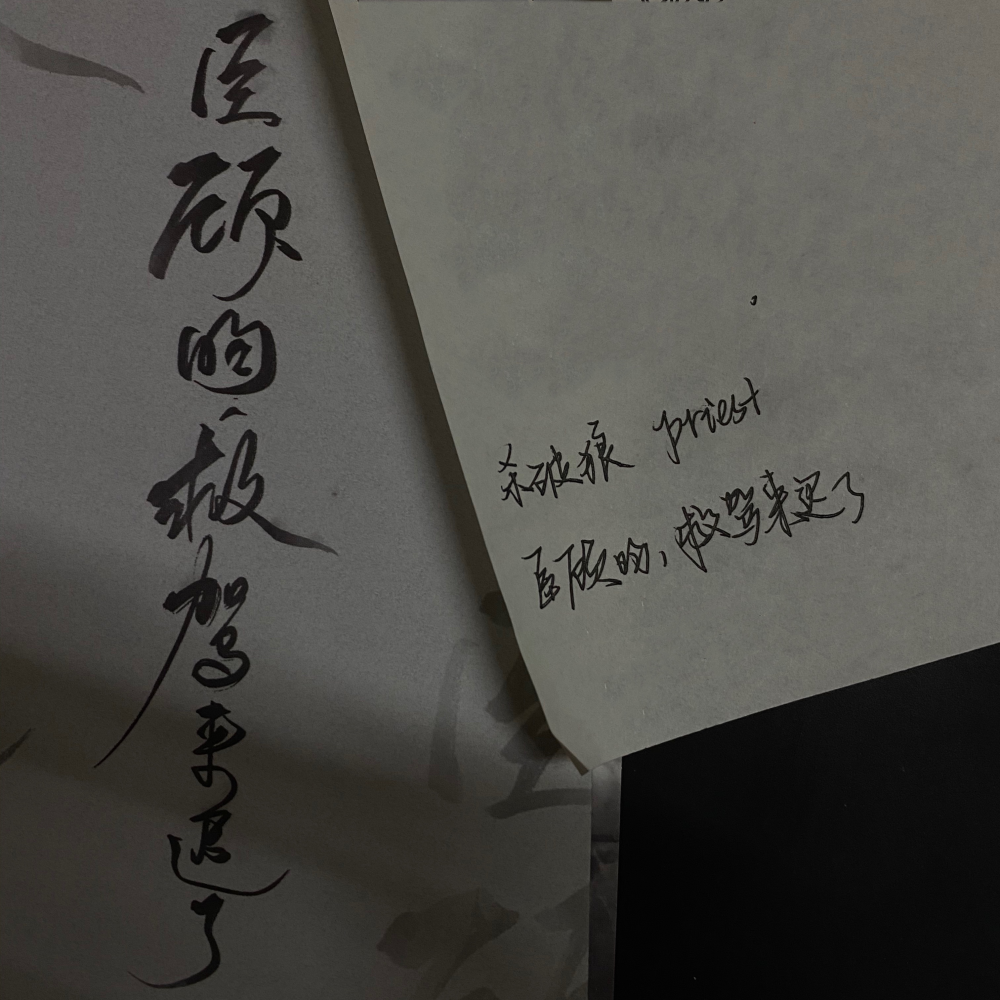 臣顾昀救驾来迟了
杀破狼 priest
臣顾昀，救驾来迟了